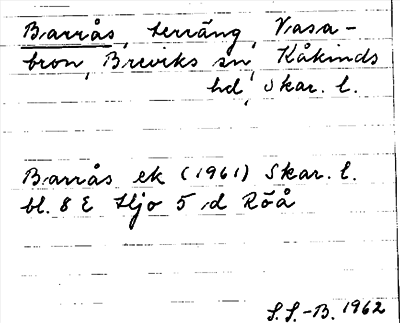 Barrås, terräng, Vasa-
bron, Breviks sn, Kåkinds
hd, Skar. l.
Barrås ek (1961) Skar. l.
bl. 8 E Hjo 5 d Röå
S.S.-B. 1962